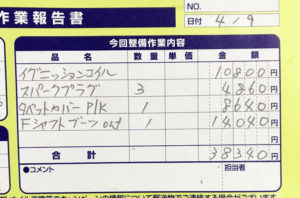 作業報告書
NO.
日付 4/9
今回整備作業内容
品名 数量 単価 金額
イグニッションコイル 10800円
スパークプラグ 3 4860円
タペットカバーP/K 1 8640円
Fシャフトブーツout 1 14040円
円
合計 38340円
●コメント 担当者